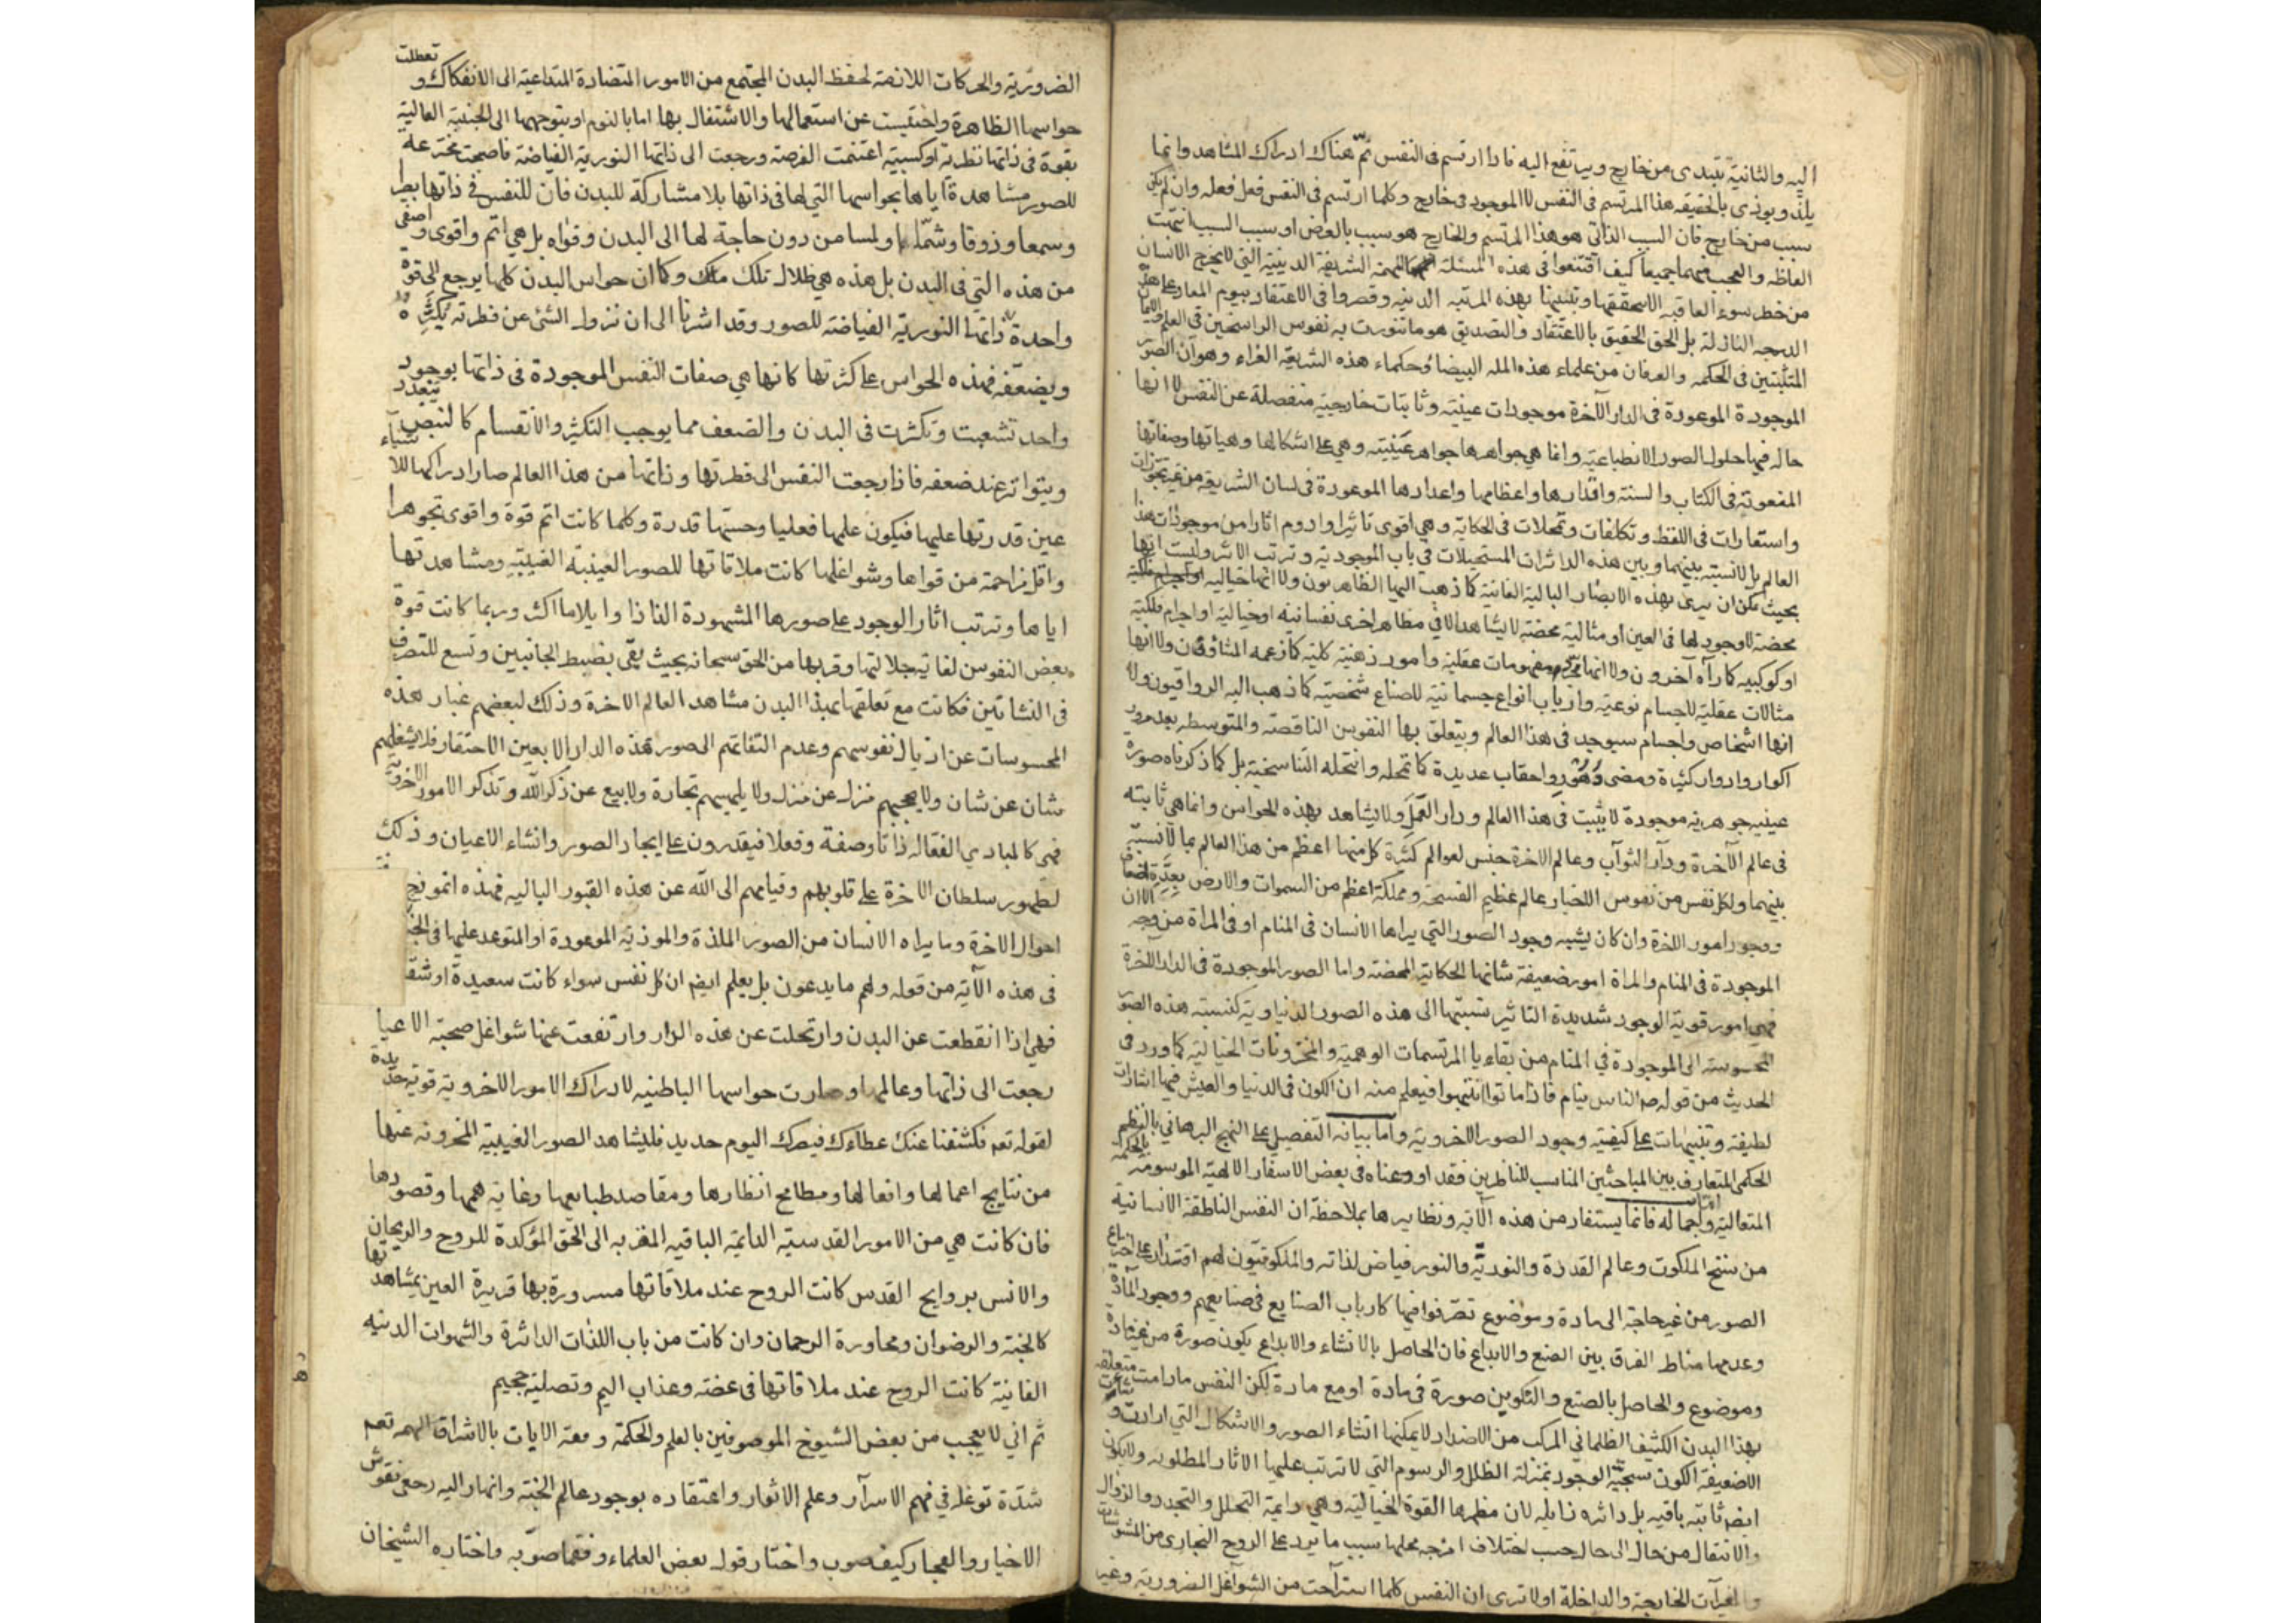 اليه والثانية تبتدى من خارج ويرتفع اليه فاذا ارتسم فى النفس تمّ هناك ادراك المشاهد وانما
يلذّ ويوذى بالحقيقه هذا المرتسم فى النفس لا الموجود فى خارج وكلما ارتسم فى النفس فعل فعله وان لم يكن
سبب من خارج فان السبب الذاتى هو هذا المرتسم والخارج هو سبب بالعرض او سبب السبب انتهت
الفاظه والعجب منهما جميعا كيف اقتنعوا فى هذه المسئلة الشريفة الدينية التى لا يخرج الانسان
من خطر سوء العاقبه الا بتحققها وتبينها بهذه المرتبه الدنيه وقصروا فى الاعتقاد بيوم المعاد على هذه
الدرجه النازلة بل الحق الحقيق بالاعتقاد والتصديق هو ما تنورت به نفوس الراسخين فى العلم
المتثبتين فى الحكمه والعرفان من علماء هذه المله البيضاء وحكماء هذه الشريعة الغراء وهو ان الصور
الموجودة الموعودة فى الدار الآخرة موجودات عينيّة وثابتات خارجيّة منفصلة عن النفس لا انها
حاله فيها حلول الصور الانطباعيّه وانما هى جواهرها جواهر عينيّته وهى على اشكالها وهياتها وصفاتها
المنعوتة فى الكتاب والسنة واقدارها واعظامها واعدادها الموعودة فى لسان الشريعة من غير تجوزات
واستعارات فى اللفظ وتكلفات وتمحلات فى الحكاية وهى اقوى تاثيرا وادوم اثارا من موجودات هذا
العالم بل لا نسبته بينهما وبين هذه الداثرات المستحيلات فى باب الموجودية وترتب الاثر وليست انها
بحيث يمكن ان يرى بهذه الابصار البالية الفانية كما ذهب اليها الظاهريون ولا انها خياليه
محضة لا وجود لها فى العين او مثالية محضة لا يشاهد الا فى مظاهر اخرى نفسانية او خيالية او اجرام فلكية
او كوكبيه كما رآه آخرون ولا انها مفهومات عقلية وامور ذهنية كلية كما زعمه المشاؤون ولا انها
مثالات عقلية لاجسام نوعية وارباب انواع جسمانية للصناع شخصية كما ذهب اليه الرواقيون ولا
انها اشخاص واجسام سيوجد فى هذا العالم ويتعلق بها النفوس الناقصة والمتوسطه بعد مرور
اكوار وادوار كثيرة ومضى دهور واحقاب عديدة كما تمحله وانتحله التناسخية بل كما ذكرناه صورة
عينيه جوهريه موجودة لا يثبت فى هذا العالم ودار العمل ولا يشاهد بهذه الحواس وانما هى ثابته
فى عالم الآخرة ودار الثوآب وعالم الاخرة جنس لعوالم كثيرة كل منها اعظم من هذا العالم بما لا نسبة
بينهما ولكل نفس من نفوس الاخيار عالم عظيم الفسحة ومملكة اعظم من السموات والارض بعدّة اضعاف
ووجود امور الاخرة وان كان يشبه وجود الصور التى يراها الانسان فى المنام او فى المراة من وجه الا ان
الموجودة فى المنام والمراة امور ضعيفة شانها الحكاية المحضة واما الصور الموجودة فى الدار الآخرة
فهى امور قوية الوجود شديدة التاثير نسبتها الى هذه الصور الدنياوية كنسبته هذه الصور
المحسوسة الى الموجودة فى المنام من بقايا المرتسمات الوهمية والمخزونات الخيالية كما ورد فى
الحديث من قوله ص الناس نيام فاذا ماتوا انتبهوا فيعلم منه ان الكون فى الدنيا والعيش فيها اشارات
لطيفة وتنبيهات على كيفية وجود الصور الاخروية واما بيانه التفصيلى على النهج البرهانى بالنظم
الحكمى المتعارف بين المباحثين المناسب للناظرين فقد اوردناه فى بعض الاسفار الالهية الموسومة بالحكمة
المتعالية واجماله فانما يستفاد من هذه الآية ونظايرها بملاحظة ان النفس الناطقة الانسانية
من سنخ الملكوت وعالم القدرة والنوريّة والنور فياض لذاته والملكوتيون لهم اقتدار على اختراع
الصور من غير حاجة الى مادة وموضوع تصرفوا فيها كارباب الصنايع فى صنايعهم ووجود المادّة
وعدمها مناط الفرق بين الصنع والابداع فان الحاصل بالانشاء والابداع يكون صورة من غير مادة
وموضوع والحاصل بالصنع والتكوين صورة فى مادة او مع مادة لكن النفس مادامت متعلقه
بهذا البدن الكثيف الظلمانى المركب من الاضداد لا يمكنها انشاء الصور والاشكال التى ارادت و
الا ضعيفة الكون سخيّة الوجود بمنزلة الظلل والرسوم التى لا ترتب عليها الاثار المطلوبه ولا يكون
ايضا ثابته باقيه بل داثره زايله لان مظهرها القوة الخيالية وهى دايمة التحلل والتجدد والزوال
والانتقال من حال الى حال حسب اختلاف امزجه محلها بسبب ما يرد على الروح البخارى من المشوشات
الخارجة والداخلة اولا ترى ان النفس كلما استراحت من الشوآغل الضرورية وغير
الضرورية والحركات اللازمة لحفظ البدن المجتمع من الامور المتضادة المتداعية الى الانفكاك و تعطلت
حواسها الظاهرة واحتبست عن استعمالها والاشتغال بها اما بالنوم او بتوجهها الى الجنبة العالية
بقوة فى ذاتها نظرية او كسبية اغتنمت الفرصة ورجعت الى ذاتها النورية الفياضة فاصبحت مخترعة
للصور مشاهدة اياها بحواسها التى لها فى ذاتها بلا مشاركة للبدن فان للنفس فى ذاتها بصرا
وسمعا وذوقا وشمّا ولمسا من دون حاجة لها الى البدن وقواه بل هى اتم واقوى واصفى
من هذه التى فى البدن بل هذه هى ظلال تلك وكما ان حواس البدن كلها يرجع الى قوة
واحدة ذاتها النورية الفياضة للصور وقد اشرنا الى ان نزول الشئ عن فطرته يكثّره
ويضعّفه فهذه الحواس على كثرتها كانها هى صفات النفس الموجودة فى ذاتها بوجود
واحد تشعبت وتكثرت فى البدن والضعف مما يوجب التكثر والانقسام كالنبض يتعدد
ويتواتر عند ضعفه فاذا رجعت النفس الى فطرتها وذاتها من هذا العالم صار ادراكها للاشياء
عين قدرتها عليها فيكون علمها فعليا وحسّها قدرة وكلما كانت اتم قوة واقوى تجوهرا
واقل مزاحمة من قواها وشواغلها كانت ملاقاتها للصور العينية الغيبية ومشاهدتها
اياها وترتب اثار الوجود على صورها المشهودة الذاذا وايلاما اكثر وربما كانت قوة
بعض النفوس لغاية جلالتها وقربها من الحق سبحانه بحيث يقى بضبط الجانبين وتسع للتصرف
فى النشاتين فكانت مع تعلقها بهذا البدن مشاهد العالم الاخرة وذلك لبعضهم غبار هذه
المحسوسات عن اذيال نفوسهم وعدم التفاتهم الى صور هذه الدار الا بعين الاحتقار فلا يشغلهم
شان عن شان ولا يحجبهم منزل عن منزل ولا يلهيهم تجارة ولا بيع عن ذكر الله وتذكر الامور الاخروية
فهى كالمبادى الفعّاله ذاتا وصفة وفعلا فيقدرون على ايجاد الصور وانشاء الاعيان وذلك
لظهور سلطان الاخرة على قلوبهم وقيامهم الى الله عن هذه القبور الباليه فهذه انموذج
احوال الاخرة وما يراه الانسان من الصور الملذة والموذية الموعودة او المتوعد عليها فى
فى هذه الآية من قوله ولهم ما يدعون بل يعلم ايضا ان كل نفس سواء كانت سعيدة او
فهى اذا انقطعت عن البدن وارتحلت عن هذه الدار وارتفعت عنها شواغل صحبة الاعيا
رجعت الى ذاتها وعالمها وصارت حواسها الباطنيه لادراك الامور الاخروية قويه حديدة
لقوله تعم فكشفنا عنك غطاءك فبصرك اليوم حديد فليشاهد الصور الغيبية المخزونه عنها
من نتايج اعمالها وافعالها ومطامح انظارها ومقاصد طبايعها وغاية هممها وقصورها
فان كانت هى من الامور القدسية الدايمة الباقيه المقربه الى الحق المؤكدة للروح والريحان
والانس بروايح القدس كانت الروح عند ملاقاتها مسرورة بها قريرة العين بمشاهدتها
كالجنة والرضوان ومجاورة الرحمان وان كانت من باب اللذات الداثرة والشهوات الدنيه
الفانية كانت الروح عند ملاقاتها فى غصّة وعذاب اليم وتصلية جحيم
ثم انى لا يعجب من بعض الشيوخ الموصوفين بالعلم والحكمة بالاشراق انهم تعم
شدّة توغله فى فهم الاسرآر وعلم الانوار واعتقاده بوجود عالم الجنة وانهار اليه رجعى نفوس
الاخيار والفجار كيف صوب واختار قول بعض العلماء وفقما صوّبه واختاره الشيخان